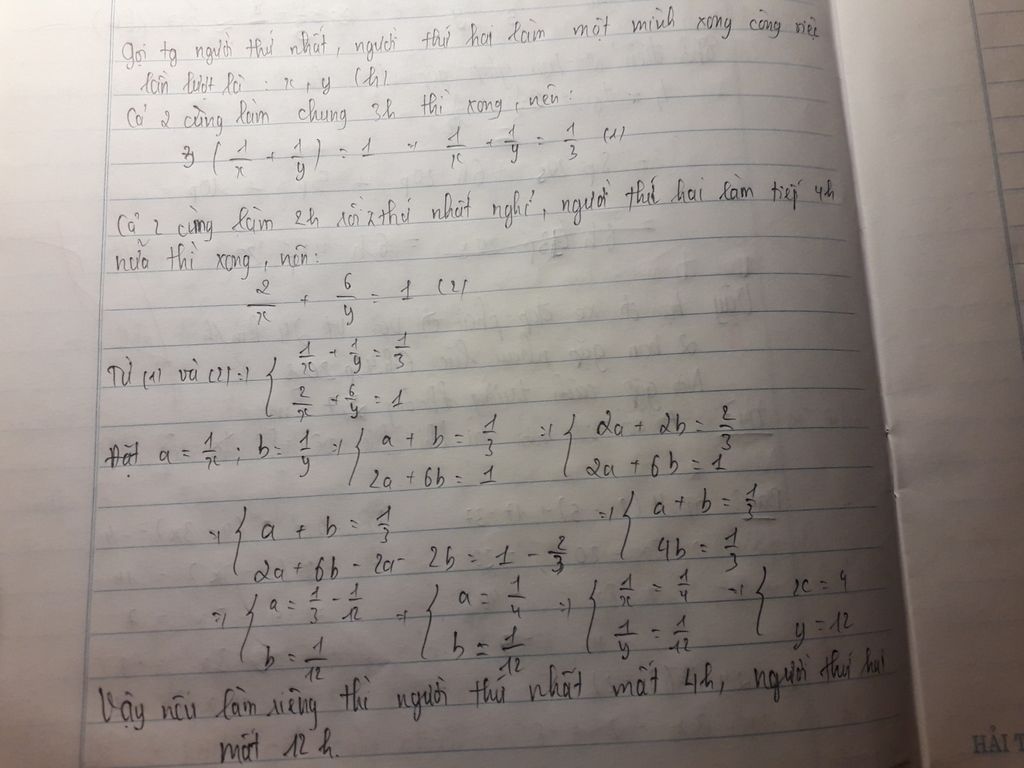 Gọi tg người thứ nhất, người thứ hai làm một mình xong công việc
lần lượt là : x, y (h)
Cả 2 cùng làm chung 3h thì xong, nên:
3 (1/x + 1/y) = 1 => 1/x + 1/y = 1/3 (1)
Cả 2 cùng làm 2h rồi thứ nhất nghỉ, người thứ hai làm tiếp 4h
nữa thì xong, nên:
2/x + 6/y = 1 (2)
Từ (1) và (2) => { 1/x + 1/y = 1/3
2/x + 6/y = 1
Đặt a = 1/x ; b = 1/y => { a + b = 1/3 => { 2a + 2b = 2/3
2a + 6b = 1 2a + 6b = 1
=> { a + b = 1/3 => { a + b = 1/3
2a + 6b - 2a - 2b = 1 - 2/3 4b = 1/3
=> { a = 1/3 - 1/12 => { a = 1/4 => { 1/x = 1/4 => { x = 4
b = 1/12 b = 1/12 1/y = 1/12 y = 12
Vậy nếu làm riêng thì người thứ nhất mất 4h, người thứ hai
mất 12 h.
HẢI T